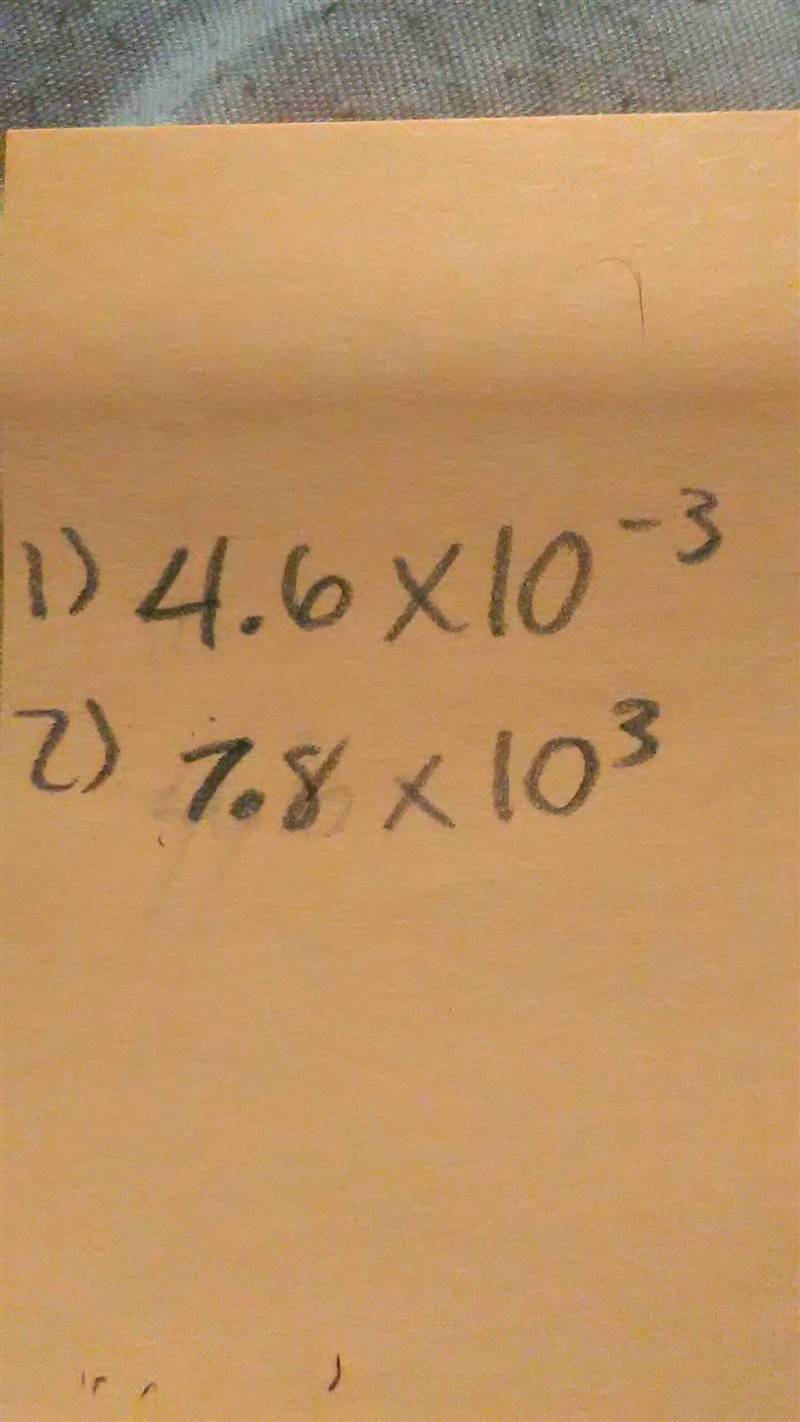 1) 4.6 x 10⁻³
2) 7.8 x 10³